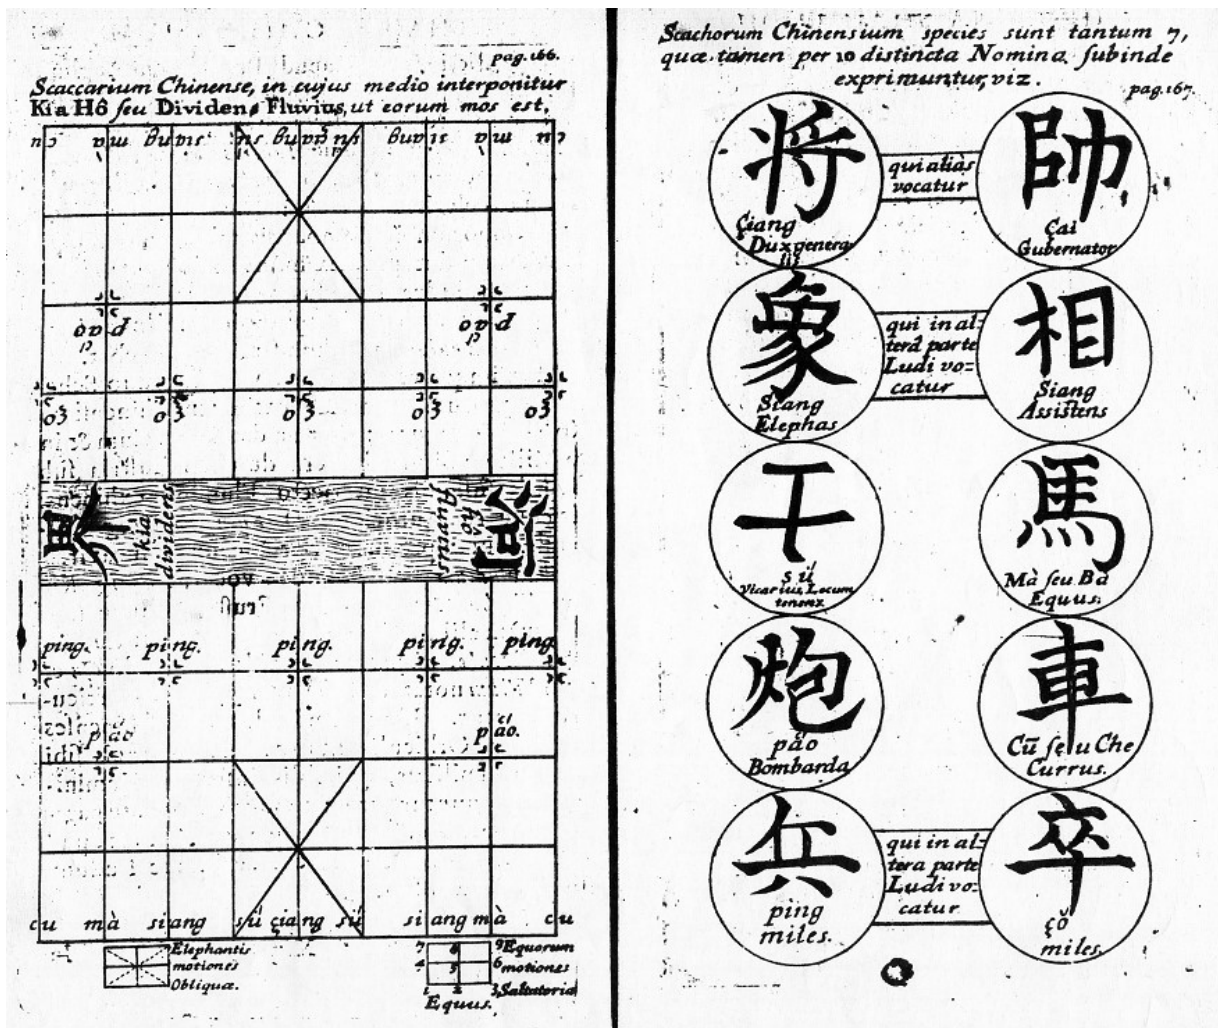 pag. 166.
Scaccarium Chinense, in cujus medio interponitur
Kia Hô seu Dividens Fluvius, ut eorum mos est,
cu mà siang sú çiang sú siang mà cu
páo páo
çó çó çó çó çó
界
kiá
dividens
fluvius
hô
河
ping. ping. ping. ping. ping.
páo páo.
cu mà siang sú çiang sú siang mà cu
Elephantis
motiones
Obliquæ.
7 8 9 Equorum
4 5 6 motiones
1 2 3, Saltatoriæ
Equus.
Scachorum Chinensium species sunt tantum 7,
quæ tamen per 10 distincta Nomina subinde
exprimuntur, viz.
pag. 167.
将
Çiang
Dux genera
lis
qui alias
vocatur
帥
Çai
Gubernator
象
Siang
Elephas
qui in al=
terâ parte
Ludi vo=
catur
相
Siang
Assistens
sú
Vicarius, Locum
tenens
馬
Mà seu Ba
Equus.
炮
páo
Bombarda
車
Cū seu Che
Currus.
兵
ping
miles.
qui in al=
tera parte
Ludi vo=
catur
卒
çŏ
miles.